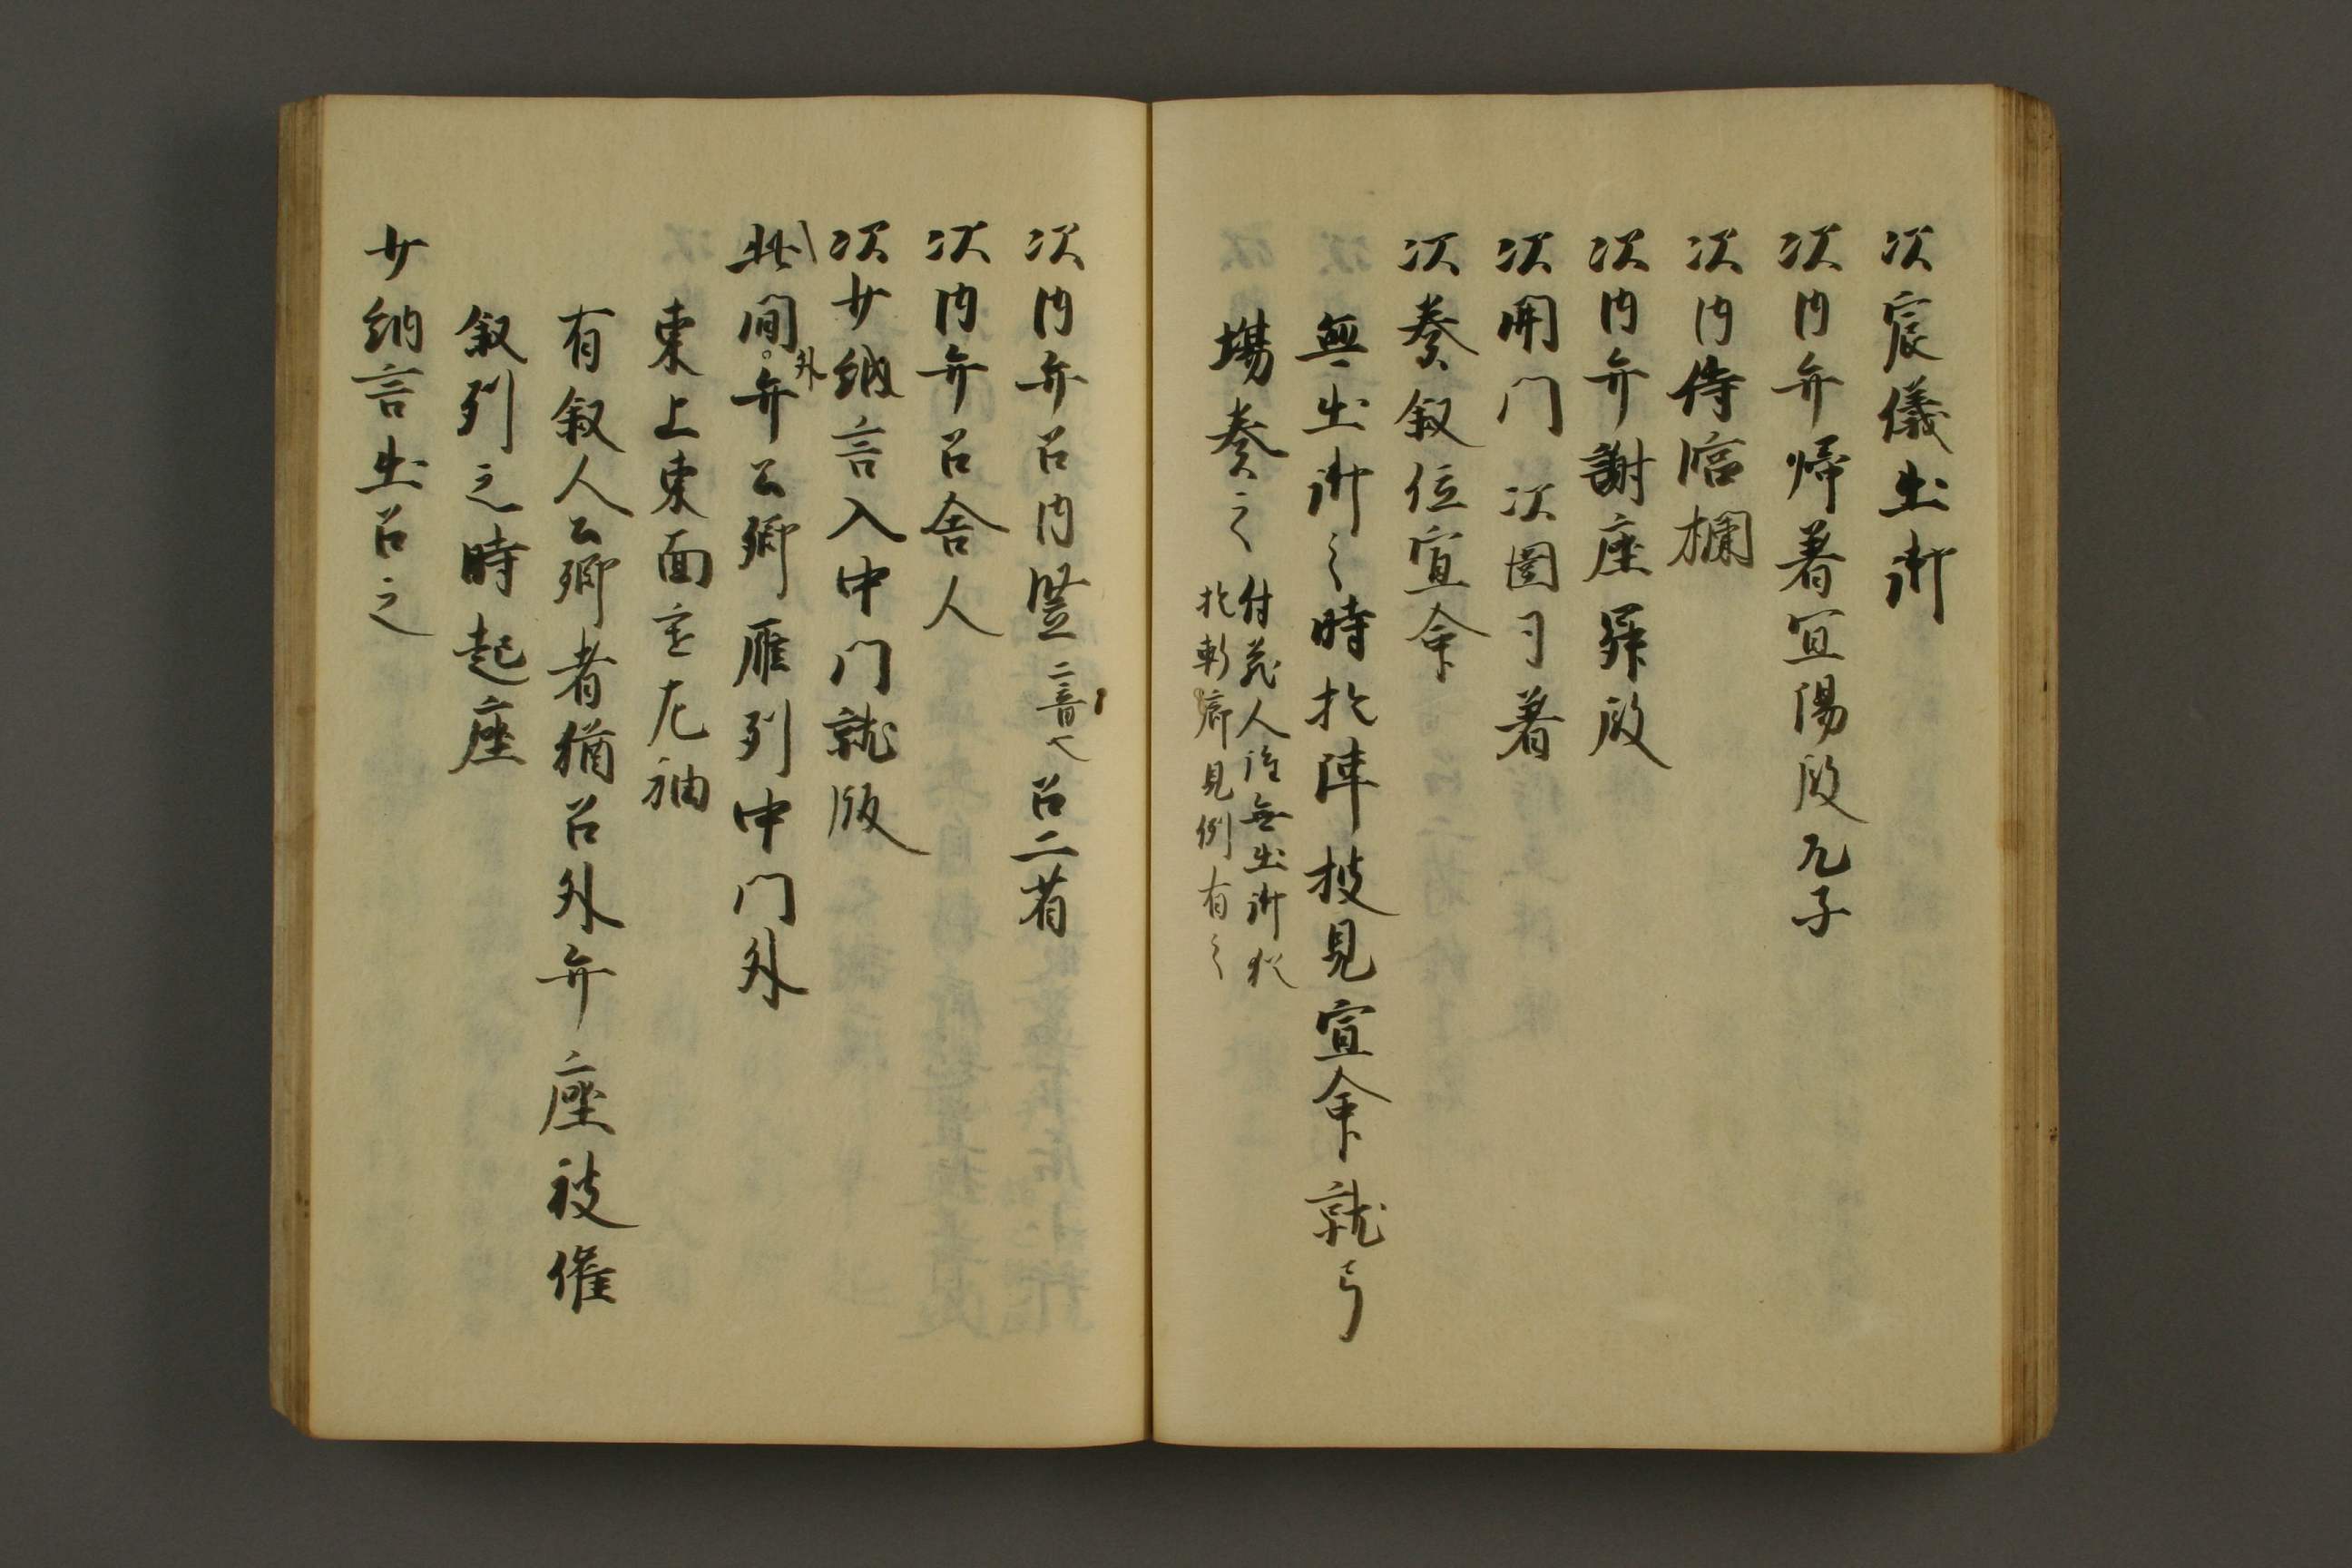 次宸儀出御
次内弁帰着宜陽殿兀子
次内侍臨檻
次内弁謝座昇殿
次開門 次囲司着
次奏叙位宣命
無出御之時於陣披見宣命就弓
場奏之
付蔵人後無出御於
於軒廊見例有之
次内弁召内豎 二音 召二省
次内弁召舎人
次少納言入中門就版
此間外弁公卿雁列中門外
東上東面
有叙人公卿者猶召外弁座被催
叙列之時起座
少納言出召之